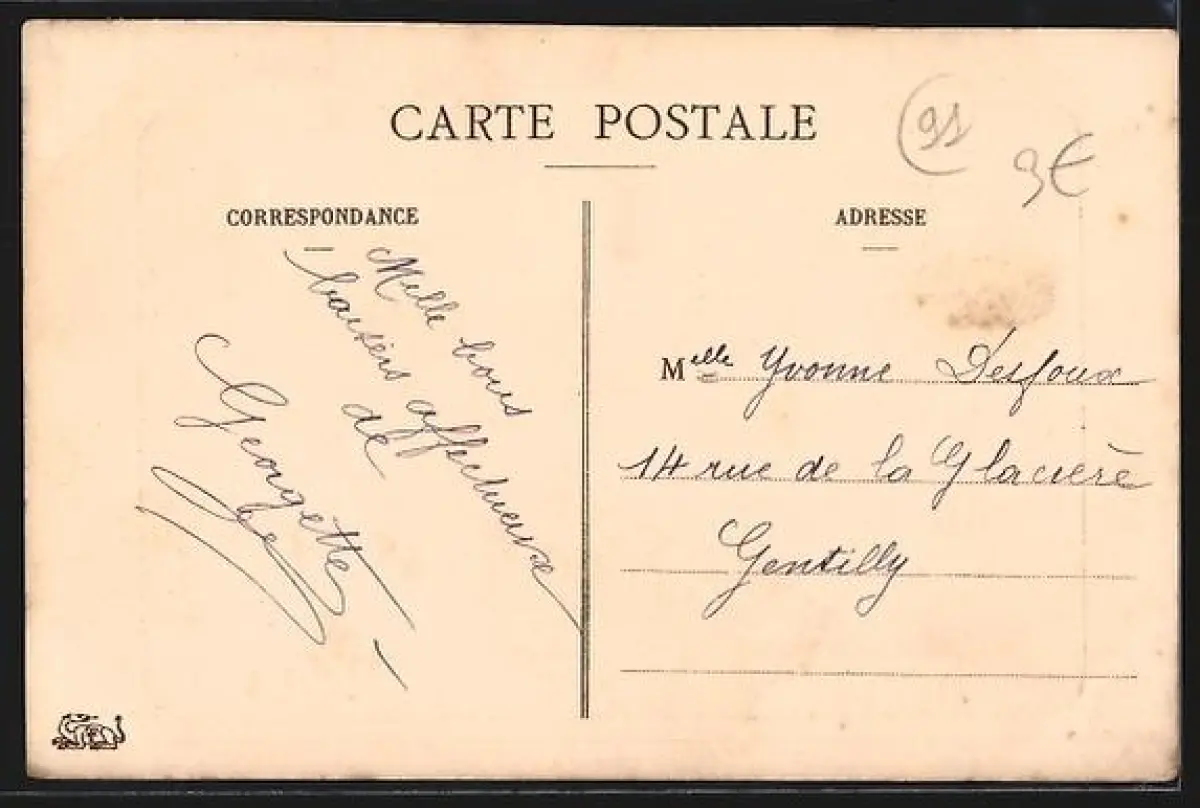 CARTE POSTALE
CORRESPONDANCE
Mille bons
baisers affectueux
de
Georgette
ADRESSE
Melle Yvonne Desfoux
14 rue de la Glacière
Gentilly
9€